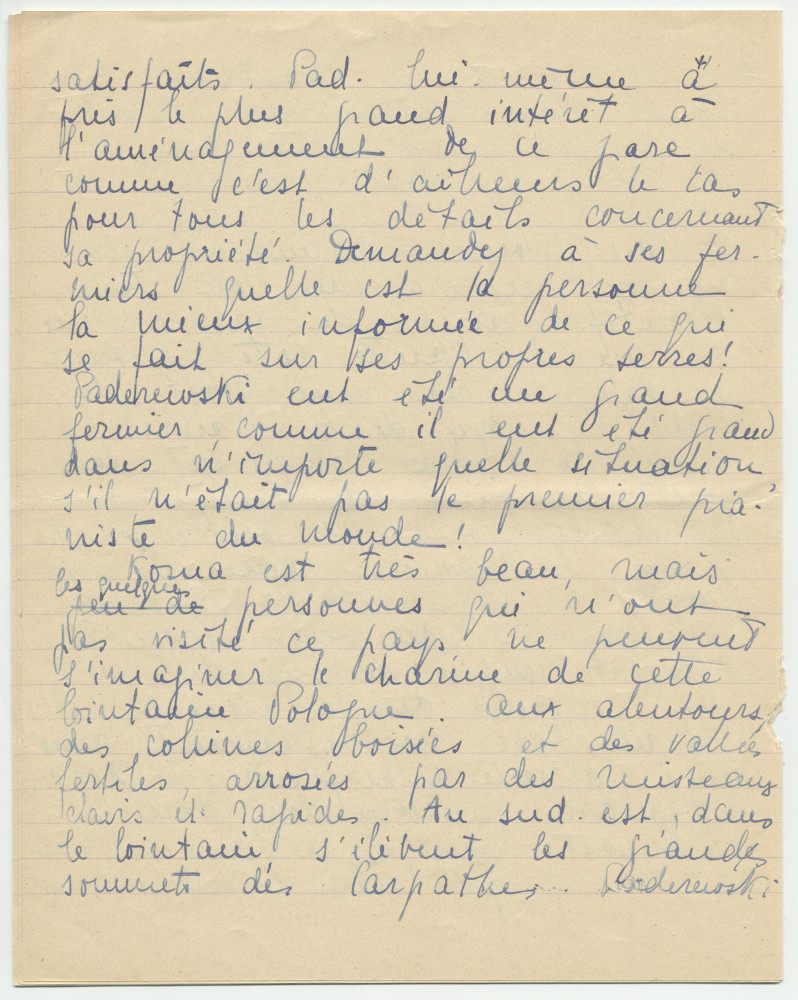 satisfaits. Pad. lui-même a
pris le plus grand intérêt à
l'aménagement de ce parc
comme c'est d'ailleurs le cas
pour tous les détails concernant
sa propriété. Demandez à ses fer-
miers quelle est la personne
la mieux informée de ce qui
se fait sur ses propres terres!
Paderewski eut été un grand
fermier comme il eut été grand
dans n'importe quelle situation
s'il n'était pas le premier pia-
niste du monde!
Kosna est très beau, mais
les quelques
peu de personnes qui n'ont
pas visité ce pays ne peuvent
s'imaginer le charme de cette
lointaine Pologne. Aux alentours
des collines boisées et des vallées
fertiles, arrosées par des ruisseaux
clairs et rapides. Au sud-est, dans
le lointain, s'élèvent les grandes
sommets des Carpathes... Paderewski